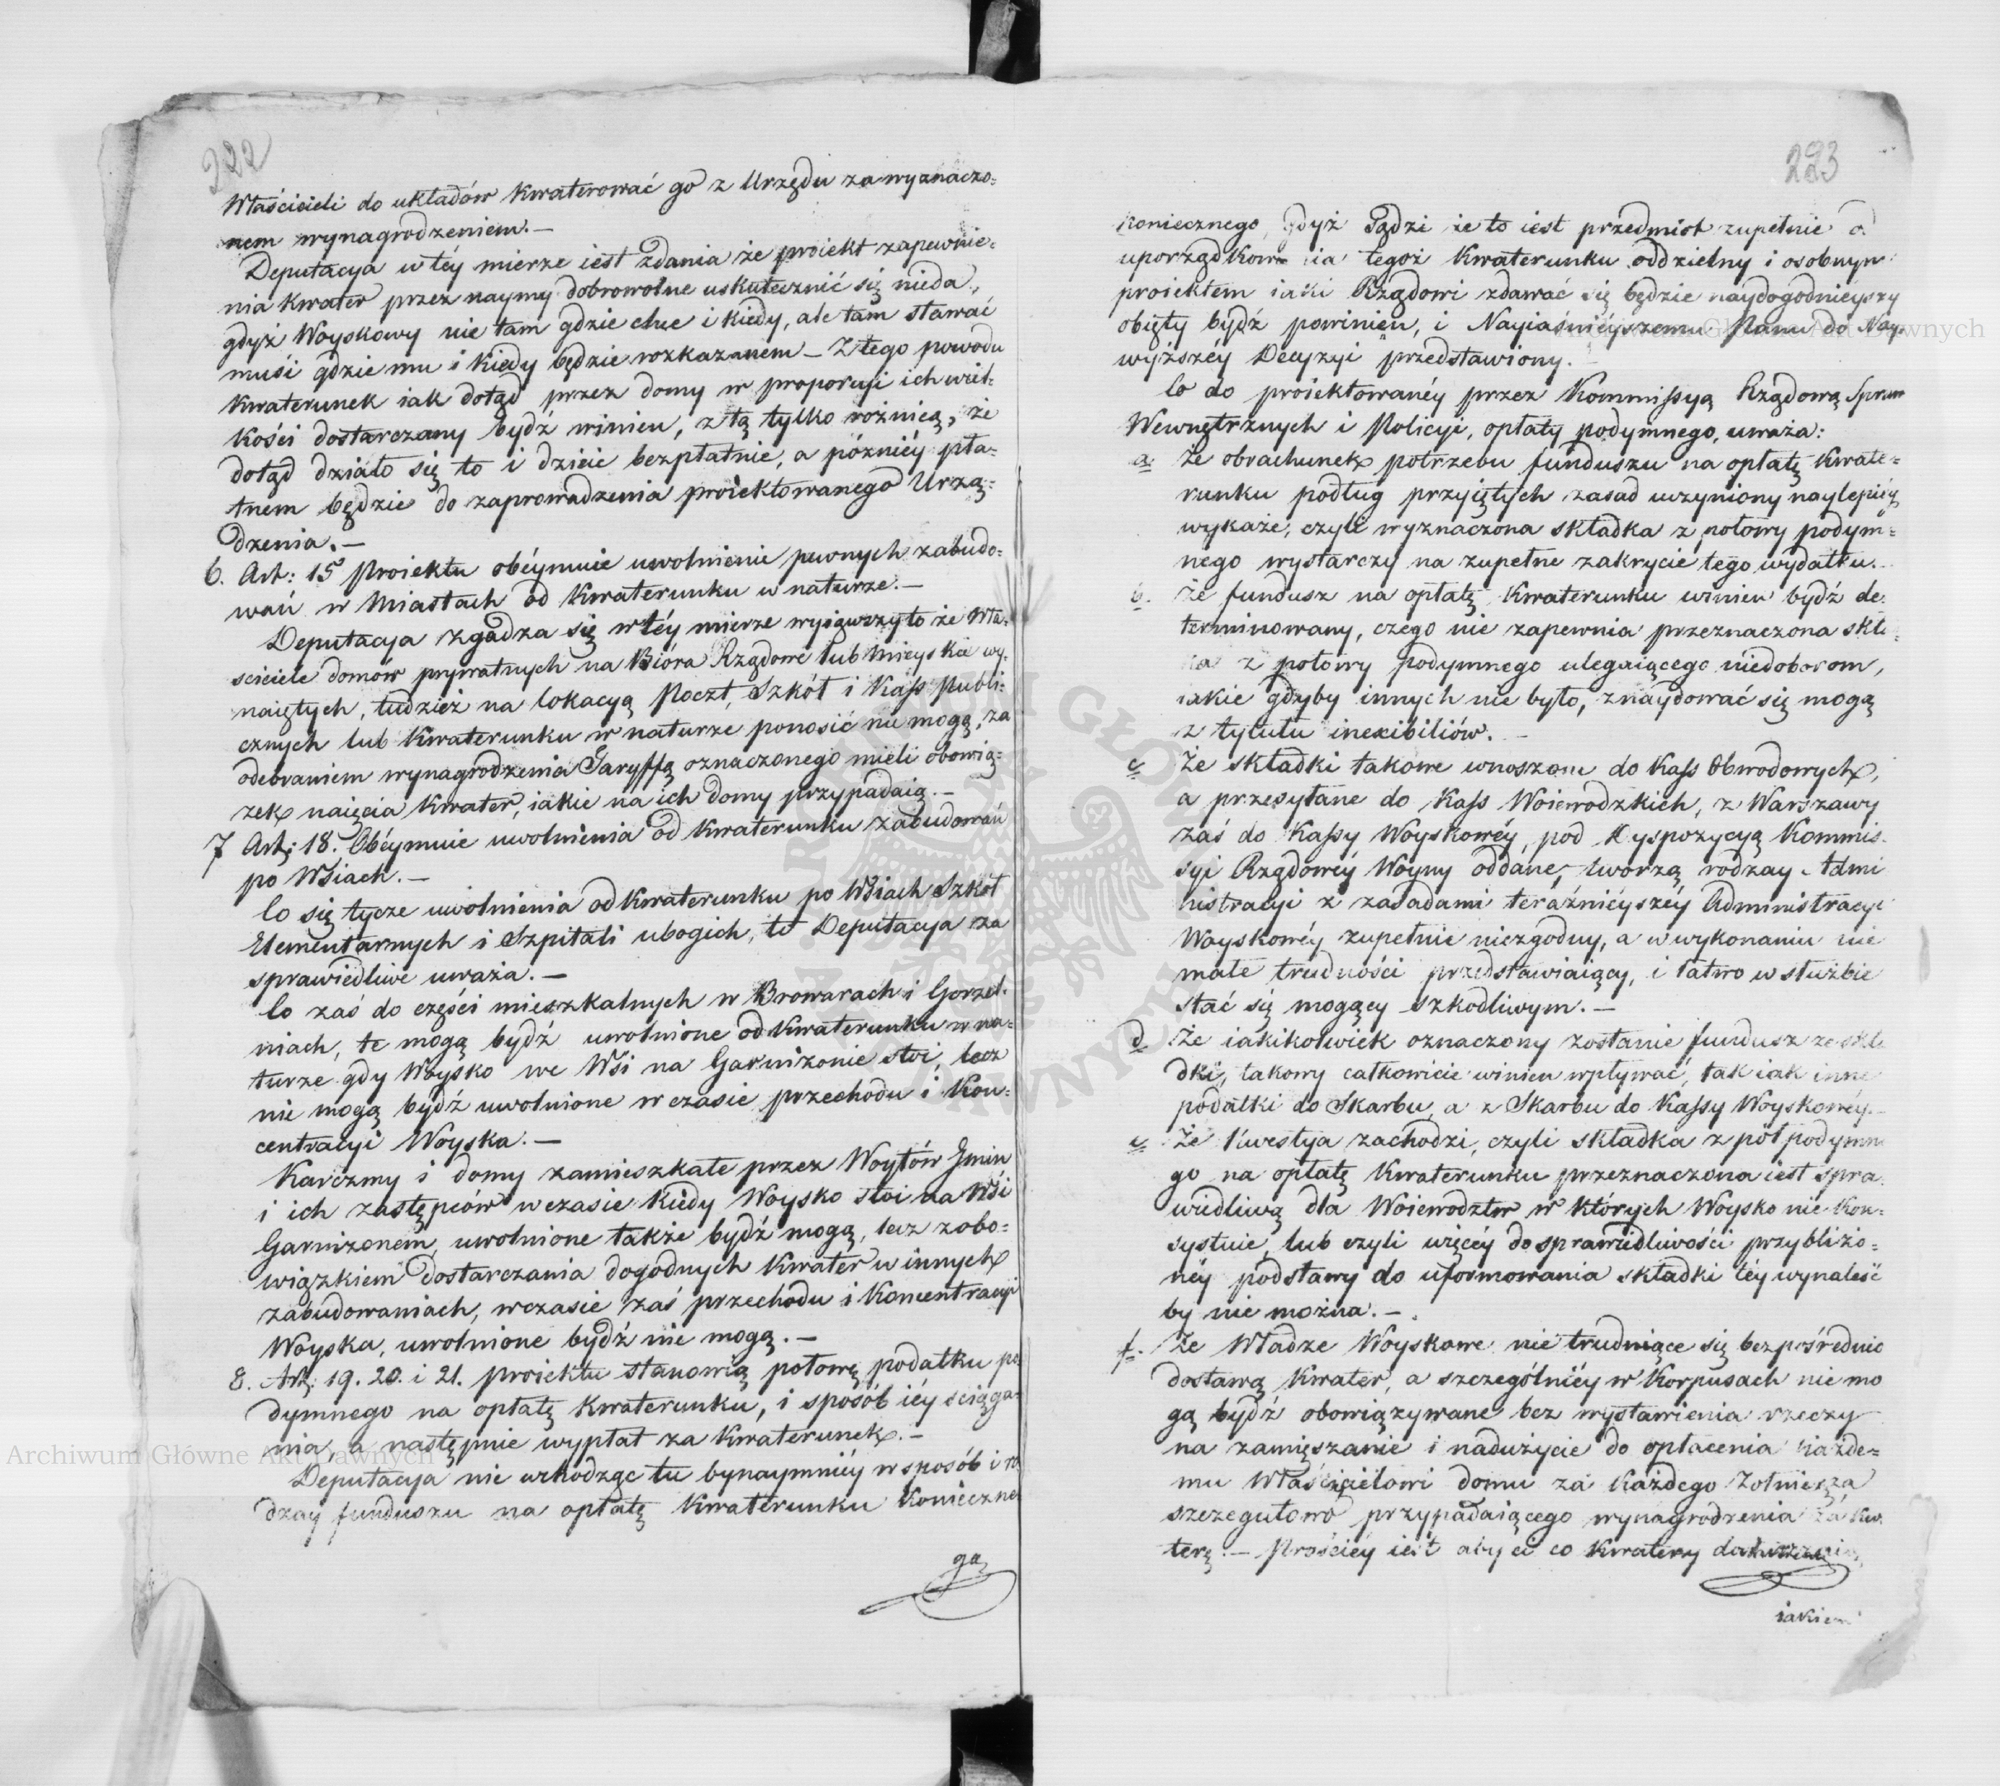 222
Właścicieli do układów kwaterować go z Urzędu za wyznaczo=
nem wynagrodzeniem.—
Deputacya w téy mierze iest zdania że proiekt zapewnie=
nia kwater przez naymy dobrowolne uskutecznić się nieda,
gdyż Woyskowy nie tam gdzie chce i kiedy, ale tam stawać
musi gdzie mu i kiedy będzie rozkazanem — Z tego powodu
kwaterunek iak dotąd przez domy w proporcyi ich wiel=
kości dostarczany bydź winien, z tą tylko rożnicą, że
dotąd działo się to i dzieie bezpłatnie, a późniéy pła=
tnem będzie do zaprowadzenia proiektowanego Urzą=
dzenia.—
6. Art: 15 Proiektu obéymuie uwolnienie pewnych zabudo=
wań w Miastach od kwaterunku w naturze.—
Deputacya zgadza się w téy mierze wyiąwszy to że Wła=
ściciele domów prywatnych na Bióra Rządowe lub Mieyskie wy=
naiętych, tudzież na lokacyą Poczt, Szkół i Kass Publi=
cznych lub kwaterunku w naturze ponosić nie mogą, za
odebraniem wynagrodzenia Taryffą oznaczonego mieli obowią=
zek naięcia kwater, iakie na ich domy przypadaią.—
7 Art: 18. Obéymuie uwolnienia od kwaterunku zabudowań
po Wsiach.—
Co się tycze uwolnienia od kwaterunku po Wsiach Szkół
Elementarnych i Szpitali ubogich, to Deputacya za
sprawiedliwe uważa.—
Co zaś do części mieszkalnych w Browarach i Gorzel=
niach, te mogą bydź uwolnione od kwaterunku w na=
turze gdy Woysko we Wsi na Garnizonie stoi, lecz
nie mogą bydź uwolnione w czasie przechodu i kon=
centracyi Woyska.—
Karczmy i domy zamieszkałe przez Woytów Gmin
i ich zastępców w czasie kiedy Woysko stoi na Wsi
Garnizonem, uwolnione także bydź mogą, lecz z obo=
wiązkiem dostarczania dogodnych kwater w innych
zabudowaniach, w czasie zaś przechodu i koncentracyi
Woyska, uwolnione bydź nie mogą.—
8. Art: 19. 20. i 21. proiektu stanowią połowę podatku po=
dymnego na opłatę kwaterunku, i sposób iéy ściąga=
nia, a następnie wypłat za kwaterunek.—
Deputacya nie wchodząc tu bynaymniéy w sposób i ro
dzay funduszu na opłatę kwaterunku konieczne
go
223
koniecznego, gdyż sądzi że to iest przedmiot zupełnie o
uporządkowania tegoż kwaterunku oddzielny i osobnym
proiektem iaki Rządowi zdawać się będzie naydogodnieyszy
obięty bydź powinien, i Nayiaśnieyszemu Panu do Nay=
wyższéy Decyzyi przedstawiony.
Co do proiektowanéy przez Kommissyą Rządową Spraw
Wewnętrznych i Policyi, opłaty podymnego, uważa:
a. Że obrachunek potrzebu funduszu na opłatę kwate=
runku podług przyiętych zasad uczyniony naylepiéy
wykaże, czyli wyznaczona składka z połowy podym=
nego wystarczy na zupełne zakrycie tego wydatku.—
b. Że fundusz na opłatę kwaterunku winien bydź de=
terminowany, czego nie zapewnia przeznaczona skła
ka z połowy podymnego ulegaiącego niedoborom,
iakie gdyby innych nie było, znaydować się mogą
z tytułu inexibiliów.—
c. Że składki takowe wnoszone do Kass Obwodowych,
a przesyłane do Kass Woiewodzkich, z Warszawy
zaś do Kassy Woyskowéy, pod Dyspozycyą Kommis=
syi Rządowéy Woyny oddane, tworzą rodzay Admi
nistracyi z zasadami teraźnieyszéy Administracyi
Woyskowéy zupełnie niezgodny, a w wykonaniu nie
małe trudności przedstawiaiący, i łatwo w służbie
stać się mogący szkodliwym.—
d. Że iakikolwiek oznaczony zostanie fundusz ze skła
dki, takowy całkowicie winien wpływać, tak iak inne
podatki do Skarbu, a z Skarbu do Kassy Woyskowéy.—
e. Że kwestya zachodzi, czyli składka z pół podymne
go na opłatę kwaterunku przeznaczona iest spra
wiedliwą dla Woiewodztw w których Woysko nie kon=
systuie, lub czyli więcéy do sprawiedliwości przybliżo=
néy podstawy do uformowania składki téy wynaleść
by nie można.—
f. Że Władze Woyskowe nie trudniące się bezpośrednio
dostawą kwater, a szczególniéy w Korpusach nie mo
gą bydź obowiązywane bez wystawienia rzeczy
na zamięszanie i nadużycie do opłacenia każde=
mu Właścicielowi domu za każdego żołnierza
szczegułowo przypadaiącego wynagrodzenia za kwa
terę.— Prościéy iest aby ci co kwatery
iakiemi
Archiwum Główne Akt Dawnych
Archiwum Główne Akt Dawnych